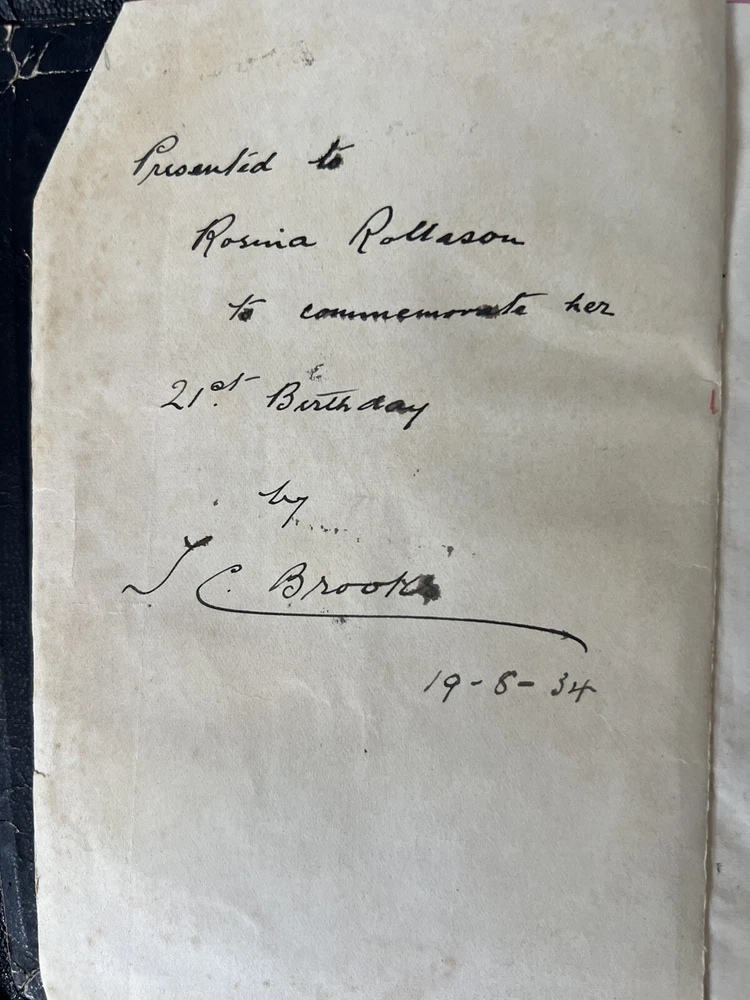 Presented to
Rosina Rollason
to commemorate her
21st Birthday
by
C. Brooks
19-8-34